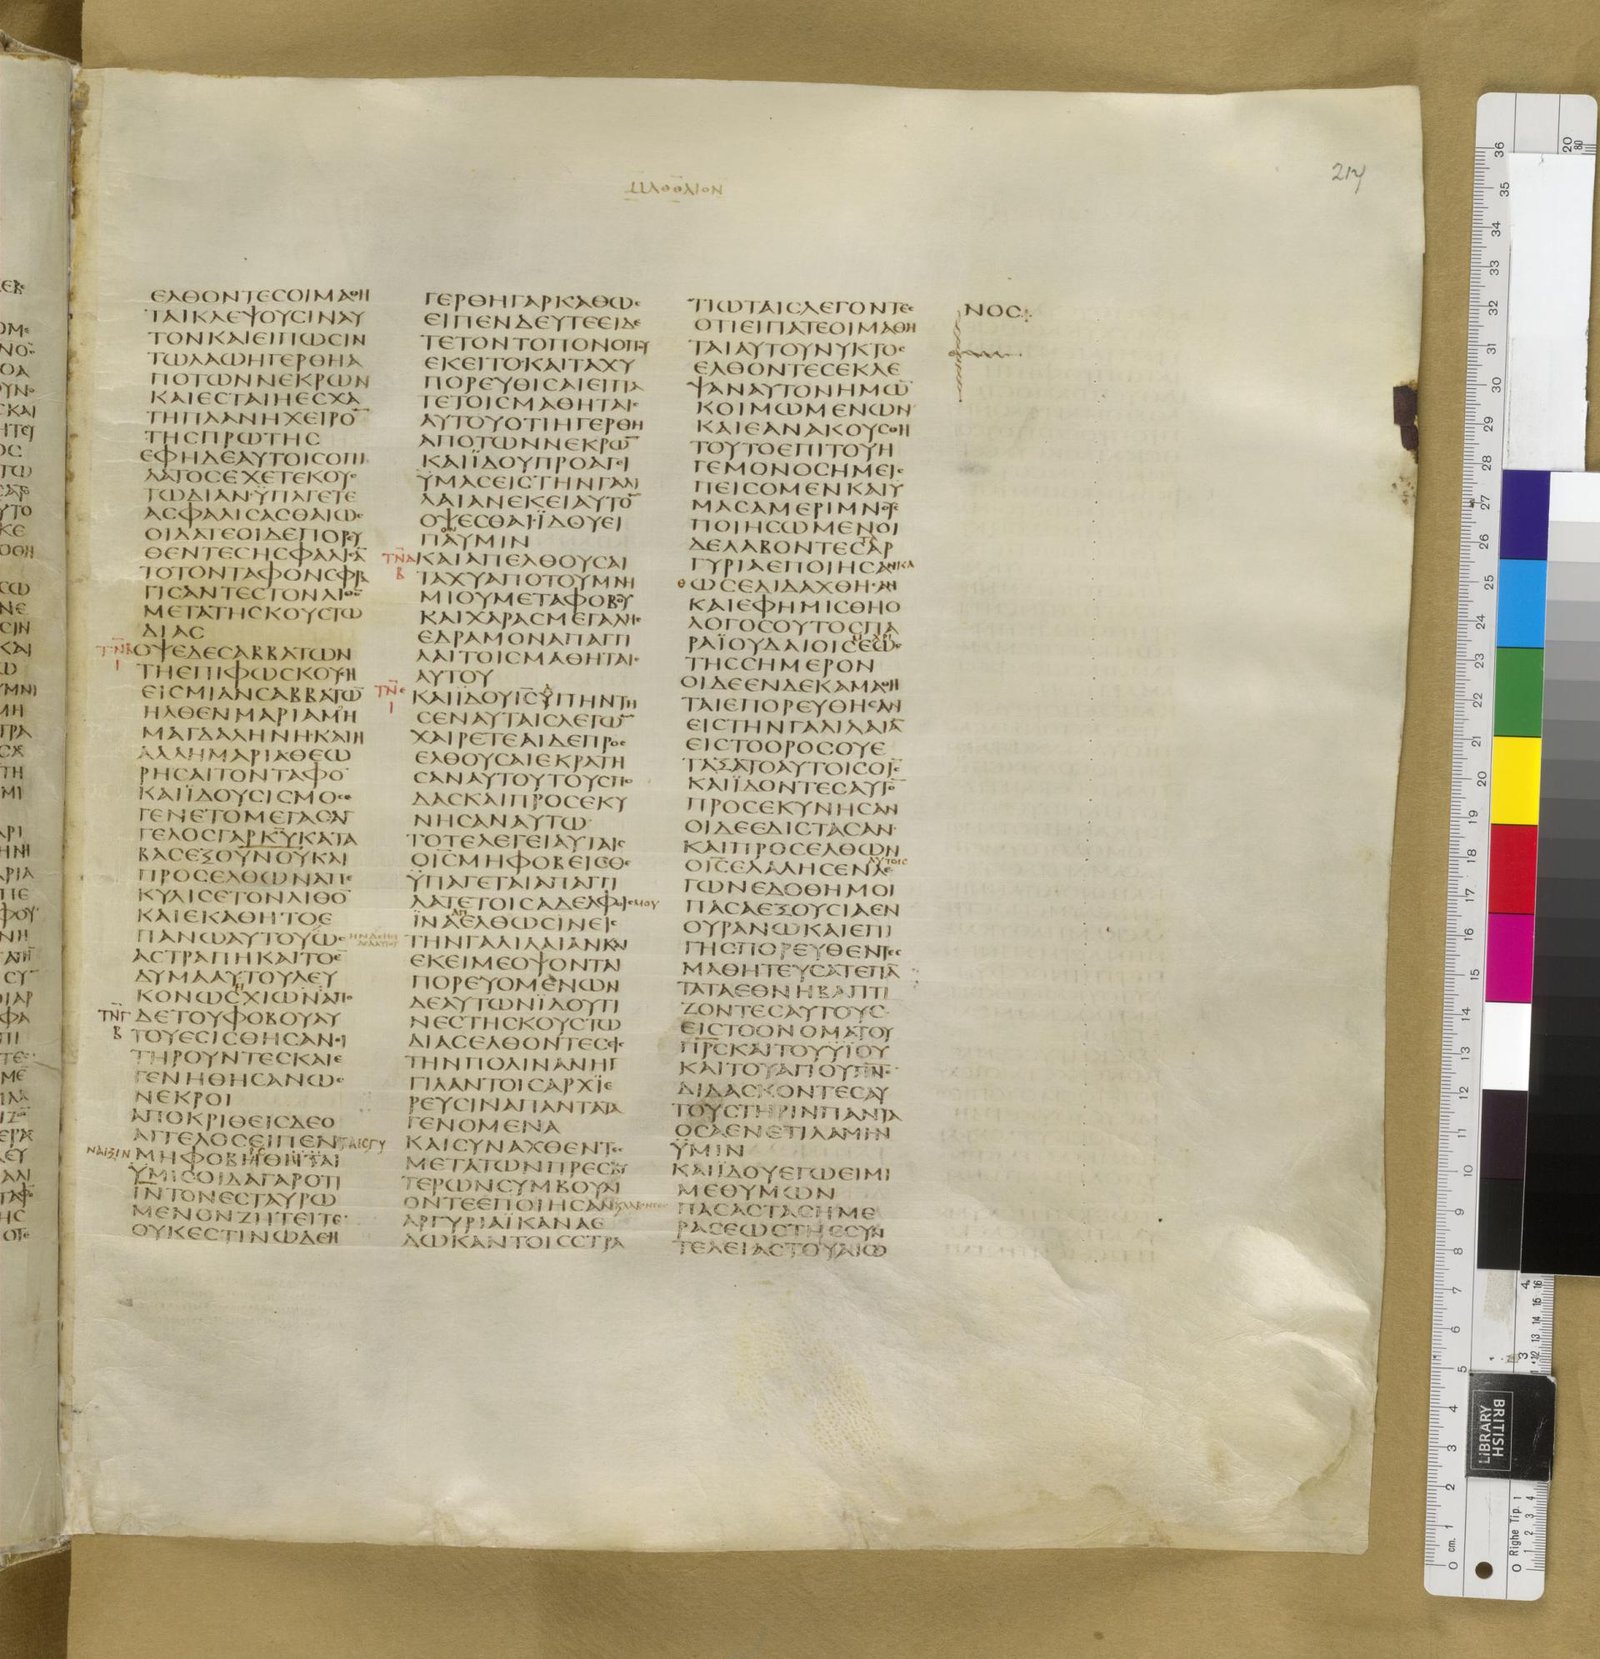 217
ΕΛΘΟΝΤΕϹΟΙΜΑΘΗ
ΤΑΙΚΛΕΨΟΥϹΙΝΑΥ
ΤΟΝΚΑΙΕΙΠΩϹΙΝ
ΤΩΛΑΩΗΓΕΡΘΗΑ
ΠΟΤΩΝΝΕΚΡΩΝ
ΚΑΙΕϹΤΑΙΗΕϹΧΑ
ΤΗΠΛΑΝΗΧΕΙΡΟ̅
ΤΗϹΠΡΩΤΗϹ
ΕΦΗΔΕΑΥΤΟΙϹΟΠΙ
ΛΑΤΟϹΕΧΕΤΕΚΟΥϹ
ΤΩΔΙΑΝ·ΫΠΑΓΕΤΕ
ΑϹΦΑΛΙϹΑϹΘΑΙΩϹ
ΟΙΔΑΤΕΟΙΔΕΠΟΡΕΥ
ΘΕΝΤΕϹΗϹΦΑΛΙϹΑ̅
ΤΟΤΟΝΤΑΦΟΝϹΦΡΑ
ΓΙϹΑΝΤΕϹΤΟΝΛΙΘΟ̅
ΜΕΤΑΤΗϹΚΟΥϹΤΩ
ΔΙΑϹ
ΟΨΕΔΕϹΑΒΒΑΤΩΝ
ΤΗΕΠΙΦΩϹΚΟΥϹΗ
ΕΙϹΜΙΑΝϹΑΒΒΑΤΩ̅
ΗΛΘΕΝΜΑΡΙΑΜΗ
ΜΑΓΔΑΛΗΝΗ·ΚΑΙΗ
ΑΛΛΗΜΑΡΙΑΘΕΩ
ΡΗϹΑΙΤΟΝΤΑΦΟ̅
ΚΑΙΪΔΟΥϹΙϹΜΟϹΕ
ΓΕΝΕΤΟΜΕΓΑϹΑΓ
ΓΕΛΟϹΓΑΡΚ̅Υ̅ΚΑΤΑ
ΒΑϹΕΞΟΥΝΟΥΚΑΙ
ΠΡΟϹΕΛΘΩΝΑΠΕ
ΚΥΛΙϹΕΤΟΝΛΙΘΟ̅
ΚΑΙΕΚΑΘΗΤΟΕ
ΠΑΝΩΑΥΤΟΥΩϹ
ΑϹΤΡΑΠΗΚΑΙΤΟΕ̅
ΔΥΜΑΑΥΤΟΥΛΕΥ
ΚΟΝΩϹΧΙΩΝΑΠΟ
ΔΕΤΟΥΦΟΒΟΥΑΥ
ΤΟΥΕϹΙϹΘΗϹΑΝΟΙ
ΤΗΡΟΥΝΤΕϹΚΑΙΕ
ΓΕΝΗΘΗϹΑΝΩϹ
ΝΕΚΡΟΙ
ΑΠΟΚΡΙΘΕΙϹΔΕΟ
ΑΓΓΕΛΟϹΕΙΠΕΝΤΑΙϹΓΥ
ΝΑΙΞΙΝ ΜΗΦΟΒΗΘΗΤΑΙ
ΫΜΙϹΟΙΔΑΓΑΡΟΤΙ
ΙΝΤΟΝΕϹΤΑΥΡΩ
ΜΕΝΟΝΖΗΤΕΙΤΕ·
ΟΥΚΕϹΤΙΝΩΔΕΗ
ΓΕΡΘΗΓΑΡΚΑΘΩϹ
ΕΙΠΕΝΔΕΥΤΕΕΙΔΕ
ΤΕΤΟΝΤΟΠΟΝΟΠΟΥ
ΕΚΕΙΤΟΚΑΙΤΑΧΥ
ΠΟΡΕΥΘΙϹΑΙΕΙΠΑ
ΤΕΤΟΙϹΜΑΘΗΤΑΙϹ
ΑΥΤΟΥΟΤΙΗΓΕΡΘΗ
ΑΠΟΤΩΝΝΕΚΡΩ̅
ΚΑΙΪΔΟΥΠΡΟΑΓΕΙ
ΫΜΑϹΕΙϹΤΗΝΓΑΛΙ
ΛΑΙΑΝΕΚΕΙΑΥΤΟ̅
ΟΨΕϹΘΑΙ·ΪΔΟΥΕΙ
ΠΑΥΜΙΝ
ΚΑΙΑΠΕΛΘΟΥϹΑΙ
ΤΑΧΥΑΠΟΤΟΥΜΝΗ
ΜΙΟΥΜΕΤΑΦΟΒΟΥ
ΚΑΙΧΑΡΑϹΜΕΓΑΛΗϹ
ΕΔΡΑΜΟΝΑΠΑΓΓΙ
ΛΑΙΤΟΙϹΜΑΘΗΤΑΙϹ
ΑΥΤΟΥ
ΚΑΙΪΔΟΥΙ̅Ϲ̅ΥΠΗΝΤΗ
ϹΕΝΑΥΤΑΙϹΛΕΓΩ̅
ΧΑΙΡΕΤΕΑΙΔΕΠΡΟϹ
ΕΛΘΟΥϹΑΙΕΚΡΑΤΗ
ϹΑΝΑΥΤΟΥΤΟΥϹΠΟ
ΔΑϹΚΑΙΠΡΟϹΕΚΥ
ΝΗϹΑΝΑΥΤΩ
ΤΟΤΕΛΕΓΕΙΑΥΤΑΙϹ
ΟΙ̅Ϲ̅ΜΗΦΟΒΕΙϹΘΕ
ΫΠΑΓΕΤΑΙΑΠΑΓΓΙ
ΛΑΤΕΤΟΙϹΑΔΕΛΦΟΙϹΜΟΥ
ΪΝΑΕΛΘΩϹΙΝΕΙϹ
ΤΗΝΓΑΛΙΛΑΙΑΝΚΑΙ
ΕΚΕΙΜΕΟΨΟΝΤΑΙ
ΠΟΡΕΥΟΜΕΝΩΝ
ΔΕΑΥΤΩΝΪΔΟΥΤΙ
ΝΕϹΤΗϹΚΟΥϹΤΩ
ΔΙΑϹΕΛΘΟΝΤΕϹΕΙϹ
ΤΗΝΠΟΛΙΝΑΝΗΓ
ΓΙΛΑΝΤΟΙϹΑΡΧΪΕ
ΡΕΥϹΙΝΑΠΑΝΤΑΤΑ
ΓΕΝΟΜΕΝΑ
ΚΑΙϹΥΝΑΧΘΕΝΤΕϹ
ΜΕΤΑΤΩΝΠΡΕϹΒΥ
ΤΕΡΩΝϹΥΜΒΟΥΛΙ
ΟΝΤΕΕΠΟΙΗϹΑΝ
ΑΡΓΥΡΙΑΪΚΑΝΑΕ
ΔΩΚΑΝΤΟΙϹϹΤΡΑ
ΤΙΩΤΑΙϹΛΕΓΟΝΤΕϹ
ΟΤΙΕΙΠΑΤΕΟΙΜΑΘΗ
ΤΑΙΑΥΤΟΥΝΥΚΤΟϹ
ΕΛΘΟΝΤΕϹΕΚΛΕ
ΨΑΝΑΥΤΟΝΗΜΩ̅
ΚΟΙΜΩΜΕΝΩΝ
ΚΑΙΕΑΝΑΚΟΥϹΘΗ
ΤΟΥΤΟΕΠΙΤΟΥΗ
ΓΕΜΟΝΟϹΗΜΕΙϹ
ΠΕΙϹΟΜΕΝΚΑΙΥ
ΜΑϹΑΜΕΡΙΜΝΟΥϹ
ΠΟΙΗϹΩΜΕΝΟΙ
ΔΕΛΑΒΟΝΤΕϹΑΡ
ΓΥΡΙΑΕΠΟΙΗϹΑΝ
ΩϹΕΔΙΔΑΧΘΗϹΑΝ
ΚΑΙΕΦΗΜΙϹΘΗΟ
ΛΟΓΟϹΟΥΤΟϹΠΑ
ΡΑΪΟΥΔΑΙΟΙϹΕΩϹ
ΤΗϹϹΗΜΕΡΟΝ
ΟΙΔΕΕΝΔΕΚΑΜΑΘΗ
ΤΑΙΕΠΟΡΕΥΘΗϹΑΝ
ΕΙϹΤΗΝΓΑΛΙΛΑΙΑ̅
ΕΙϹΤΟΟΡΟϹΟΥΕ
ΤΑΞΑΤΟΑΥΤΟΙϹΟΙ̅Ϲ̅
ΚΑΙΪΔΟΝΤΕϹΑΥΤΟ̅
ΠΡΟϹΕΚΥΝΗϹΑΝ
ΟΙΔΕΕΔΙϹΤΑϹΑΝ·
ΚΑΙΠΡΟϹΕΛΘΩΝ
ΟΙ̅Ϲ̅ΕΛΑΛΗϹΕΝΛΕ
ΓΩΝΕΔΟΘΗΜΟΙ
ΠΑϹΑΕΞΟΥϹΙΑΕΝ
ΟΥΡΑΝΩΚΑΙΕΠΙ
ΓΗϹΠΟΡΕΥΘΕΝΤΕϹ
ΜΑΘΗΤΕΥϹΑΤΕΠΑ̅
ΤΑΤΑΕΘΝΗΒΑΠΤΙ
ΖΟΝΤΕϹΑΥΤΟΥϹ
ΕΙϹΤΟΟΝΟΜΑΤΟΥ
Π̅Ρ̅Ϲ̅ΚΑΙΤΟΥΥΪΟΥ
ΚΑΙΤΟΥΑΓΙΟΥΠ̅Ν̅Ϲ̅
ΔΙΔΑϹΚΟΝΤΕϹΑΥ
ΤΟΥϹΤΗΡΙΝΠΑΝΤΑ
ΟϹΑΕΝΕΤΙΛΑΜΗΝ
ΫΜΙΝ
ΚΑΙΪΔΟΥΕΓΩΕΙΜΙ
ΜΕΘΥΜΩΝ
ΠΑϹΑϹΤΑϹΗΜΕ
ΡΑϹΕΩϹΤΗϹϹΥΝ
ΤΕΛΕΙΑϹΤΟΥΑΙΩ
ΝΟϹ